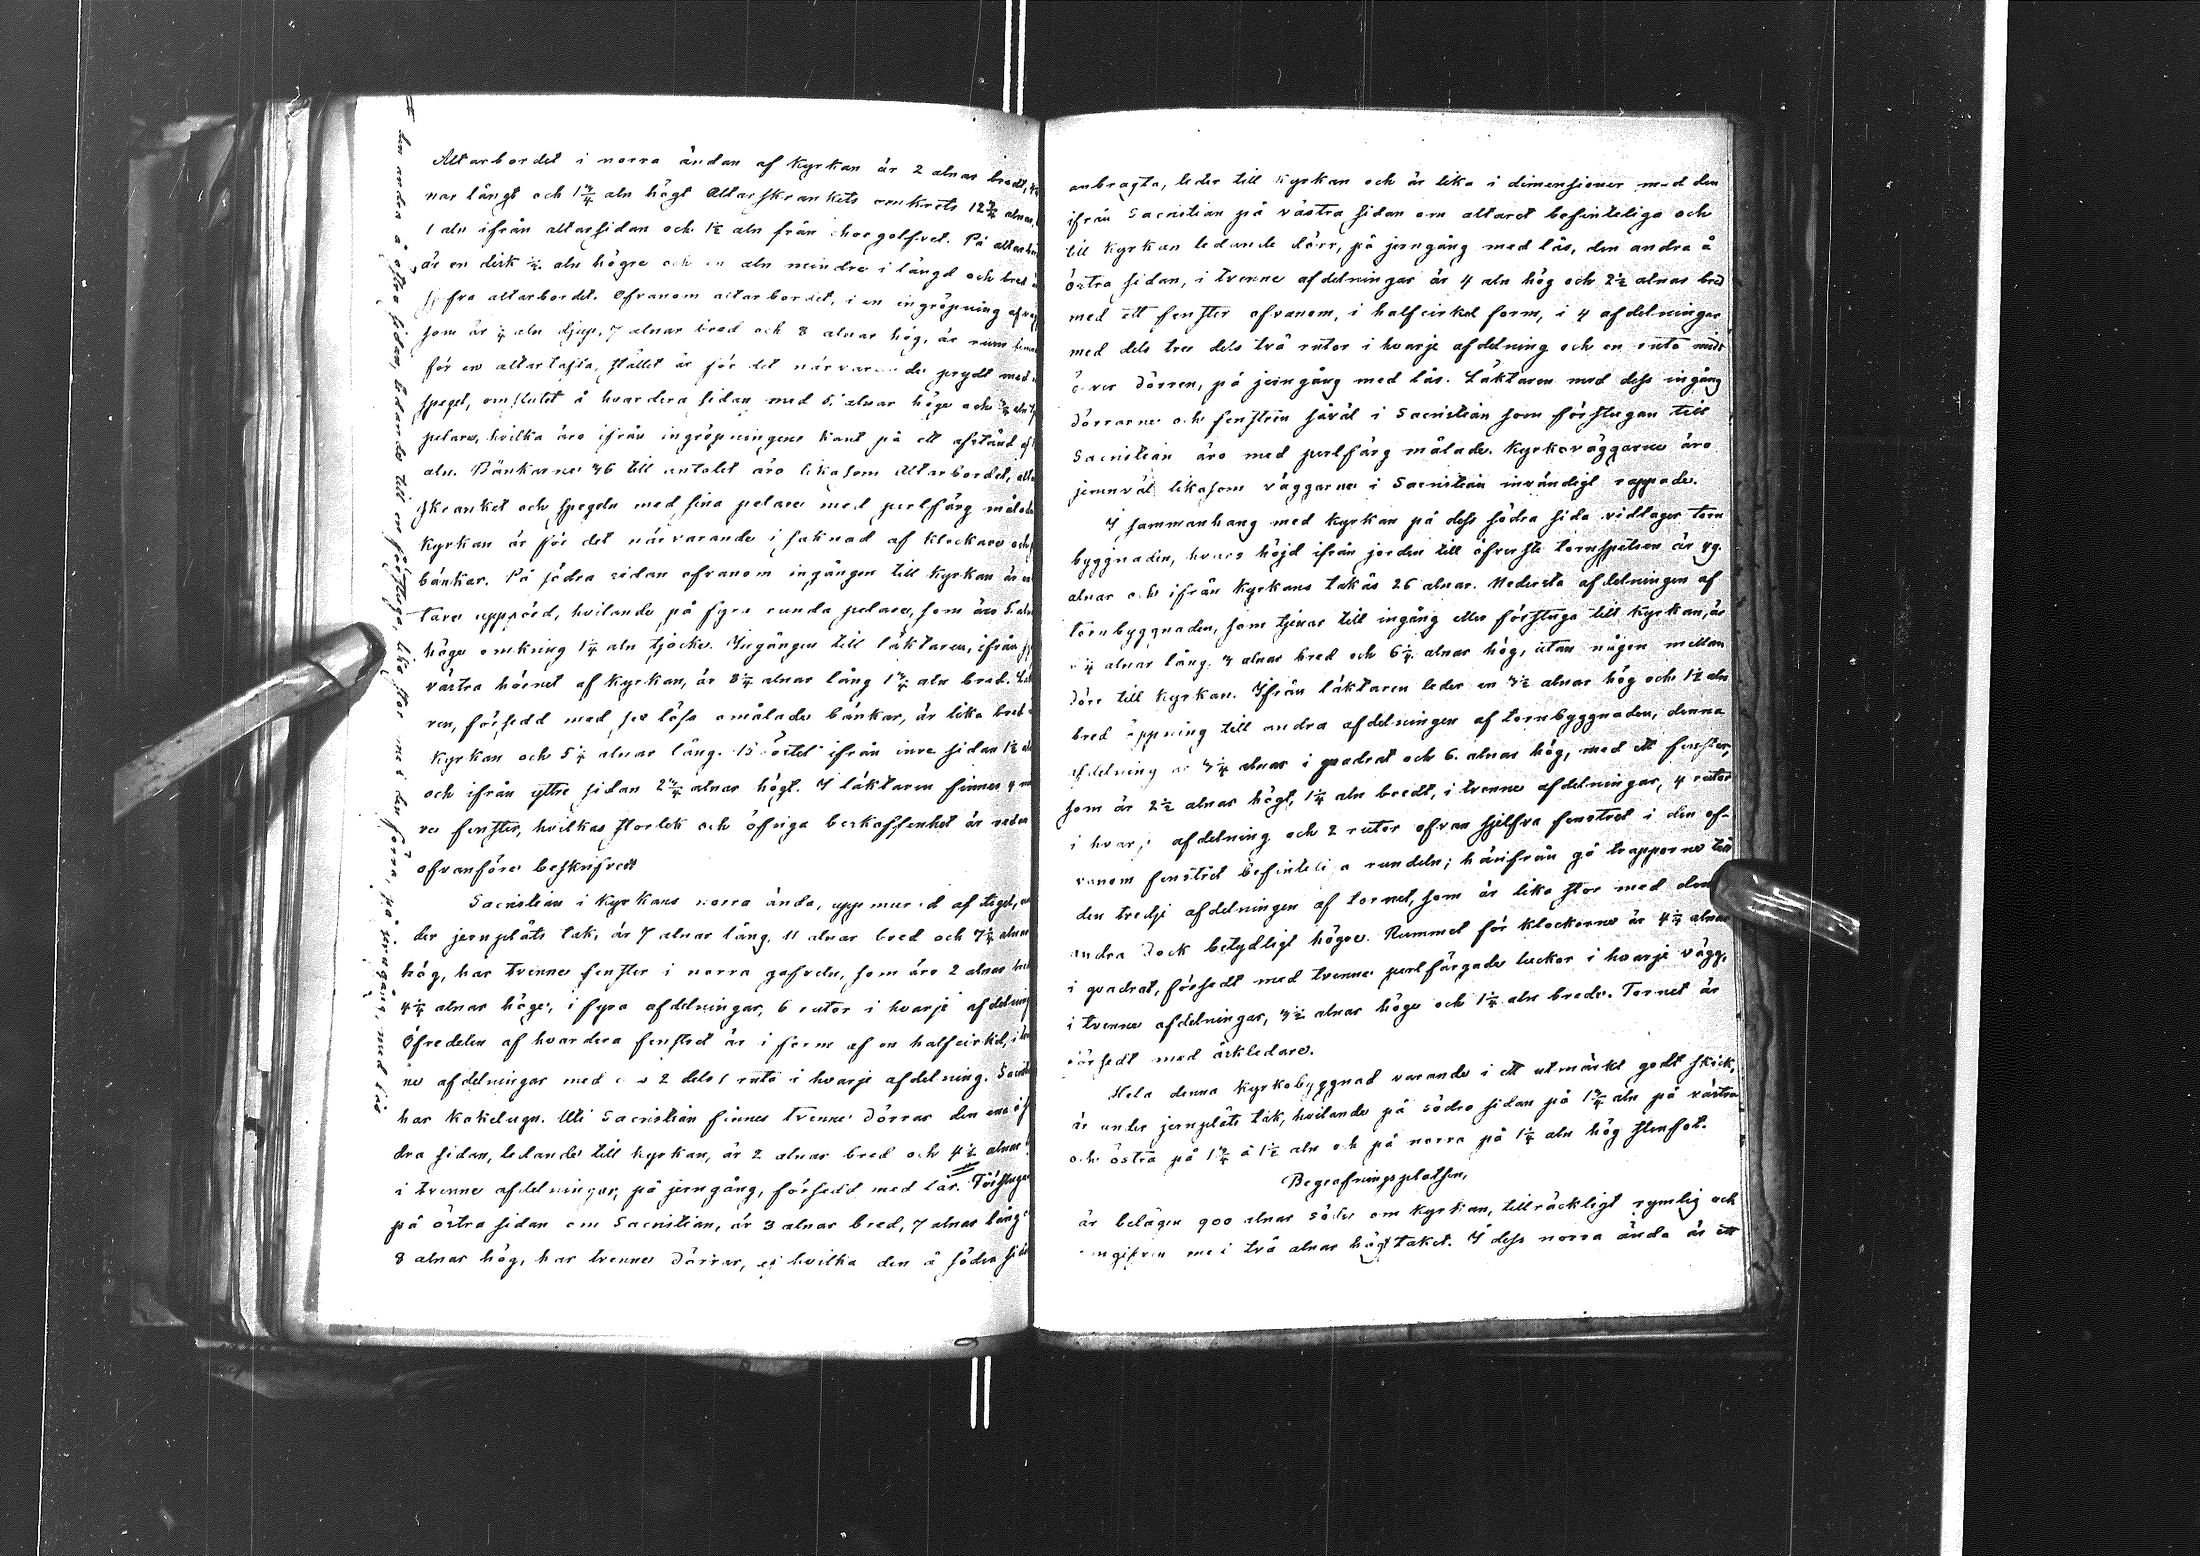 Altarbordet i norra ändan af Kyrkan är 2 alnar bredt,
nar långt och 1 3/4 aln högt Altarskrankets omkrets 12 3/4 alnar,
1 aln ifrån altarsidan och 1 1/2 aln från chorgolfvet. På
är en disk aln högre och en aln mindre i längd och
sjelfva altarbordet. Ofvanom altarbordet, i en ingröpning
som är 1/4 aln djup, 7 alnar bred och 8 alnar hög, är rum
för en altartafla, stället är för det närvarande prydt med
spegel, omslutet å hvardera sidan med 5 alnar höga och
pelare, hvilka äro ifrån ingröpningens kant på ett afstånd af
aln. Bänkarne 36 till antalet äro likasom Altarbordet,
skranket och spegeln med sina pelare med perlfärg målade
Kyrkan är för det närvarande i saknad af klockare och
bänkar. På södra sidan ofvanom ingången till Kyrkan är
tare uppförd, hvilande på fyra runda pelare, som äro 5
höga omkring 1 1/4 aln tjocka. Ingången till läktaren, ifrån
västra hörnet af Kyrkan, är 8 1/4 alnar lång 1 3/4 aln bred.
ren, försedd med sex lösa omålade bänkar, är lika bred
Kyrkan och 5 1/4 alnar lång. Bröstet ifrån inre sidan 1 1/2
och ifrån yttre sidan 2 3/4 alnar högt. I läktaren finnes 4
re fenster, hvilkas storlek och öfriga beskaffenhet är redan
ofvanföre beskrifvett
Sacristian i Kyrkans norra ända, uppmurad af tegel,
der jernplåts tak, är 7 alnar lång, 11 alnar bred och 7 1/2 alnar
hög, har tvenne fenster i norra gafveln, som äro 2 alnar
4 1/4 alnar höga, i fyra afdelningar, 6 rutor i hvarje afdelning
Öfredelen af hvardera fenstret är i form af en halfcirkel,
ne afdelningar med 2 dels 1 ruta i hvarje afdelning.
har Kakelugn. Uti Sacristian finnes tvenne dörrar den ena å
dra sidan, ledande till Kyrkan, är 2 alnar bred och 4 1/2 alnar
i tvenne afdelningar, på jerngång, försedd med lås. Förstugan
på östra sidan om Sacristian, är 3 alnar bred, 7 alnar lång
8 alnar hög, har tvenne dörrar, af hvilka den å södra
# den andra å östra sidan, ledande till en förstuga, lika stor med den förra, på jerngång, med lås
anbragta, leder till Kyrkan och är lika i dimensioner med den
ifrån Sacristian på västra sidan om altaret befinteliga och
till Kyrkan ledande dörr, på jerngång med lås, den andra å
östra sidan, i tvenne afdelningar är 4 aln hög och 2 1/2 alnar bred
med ett fenster ofvanom, i halfcirkel form, i 4 afdelningar
med dels tre dels två rutor i hvarje afdelning och en ruta midt
över dörren, på jerngång med lås. Läktaren med dess ingång
dörrarne och fenstren såväl i Sacristian som förstugan till
Sacristian äro med perlfärg målade. Kyrkoväggarne äro
jemnväl likasom väggarne i Sacristian invändigt rappade.
I sammanhang med Kyrkan på dess södra sida vidtager torn
byggnaden, hvars höjd ifrån jorden till öfversta tornspetsen är 49
alnar och ifrån Kyrkans takås 26 alnar. Nedersta afdelningen af
tornbyggnaden, som tjenar till ingång eller förstuga till Kyrkan, är
4 alnar lång, 7 alnar bred och 6 1/4 alnar hög, utan någon mellan
dörr till Kyrkan. Ifrån läktaren leder en 3 1/2 alnar hög och 1 1/2 aln
bred öppning till andra afdelningen af tornbyggnaden, denna
afdelning är alnar i quadrat och 6 alnar hög, med ett fenster,
som är 2 1/2 alnar högt, 1 1/4 aln bredt, i tvenne afdelningar, 4 rutor
i hvarje afdelning och 2 rutor ofvan sjelfva fenstret i den of-
vanom fenstret befinteliga rundeln; härifrån gå trapporne till
den tredje afdelningen af tornet, som är lika stor med den
andra dock betydligt högre. Rummet för klockorne är 4 1/4 alnar
i quadrat, försedt med tvenne perlfärgade luckor i hvarje vägg,
i tvenne afdelningar, 3 1/2 alnar höga och 1 1/4 aln breda. Tornet är
försedt med åskledare.
Hela denna Kyrkobyggnad varande i ett utmärkt godt skick,
är under jernplåts tak, hvilande på södra sidan på 1 3/4 aln på västra
och östra på 1 3/4 à 1 1/2 aln och på norra på 1 1/4 aln hög stenfot.
Begrafningsplatsen,
är belägen 900 alnar söder om Kyrkan, tillräckligt rymlig och
omgifven med två alnar högt staket. I dess norra ända är ett